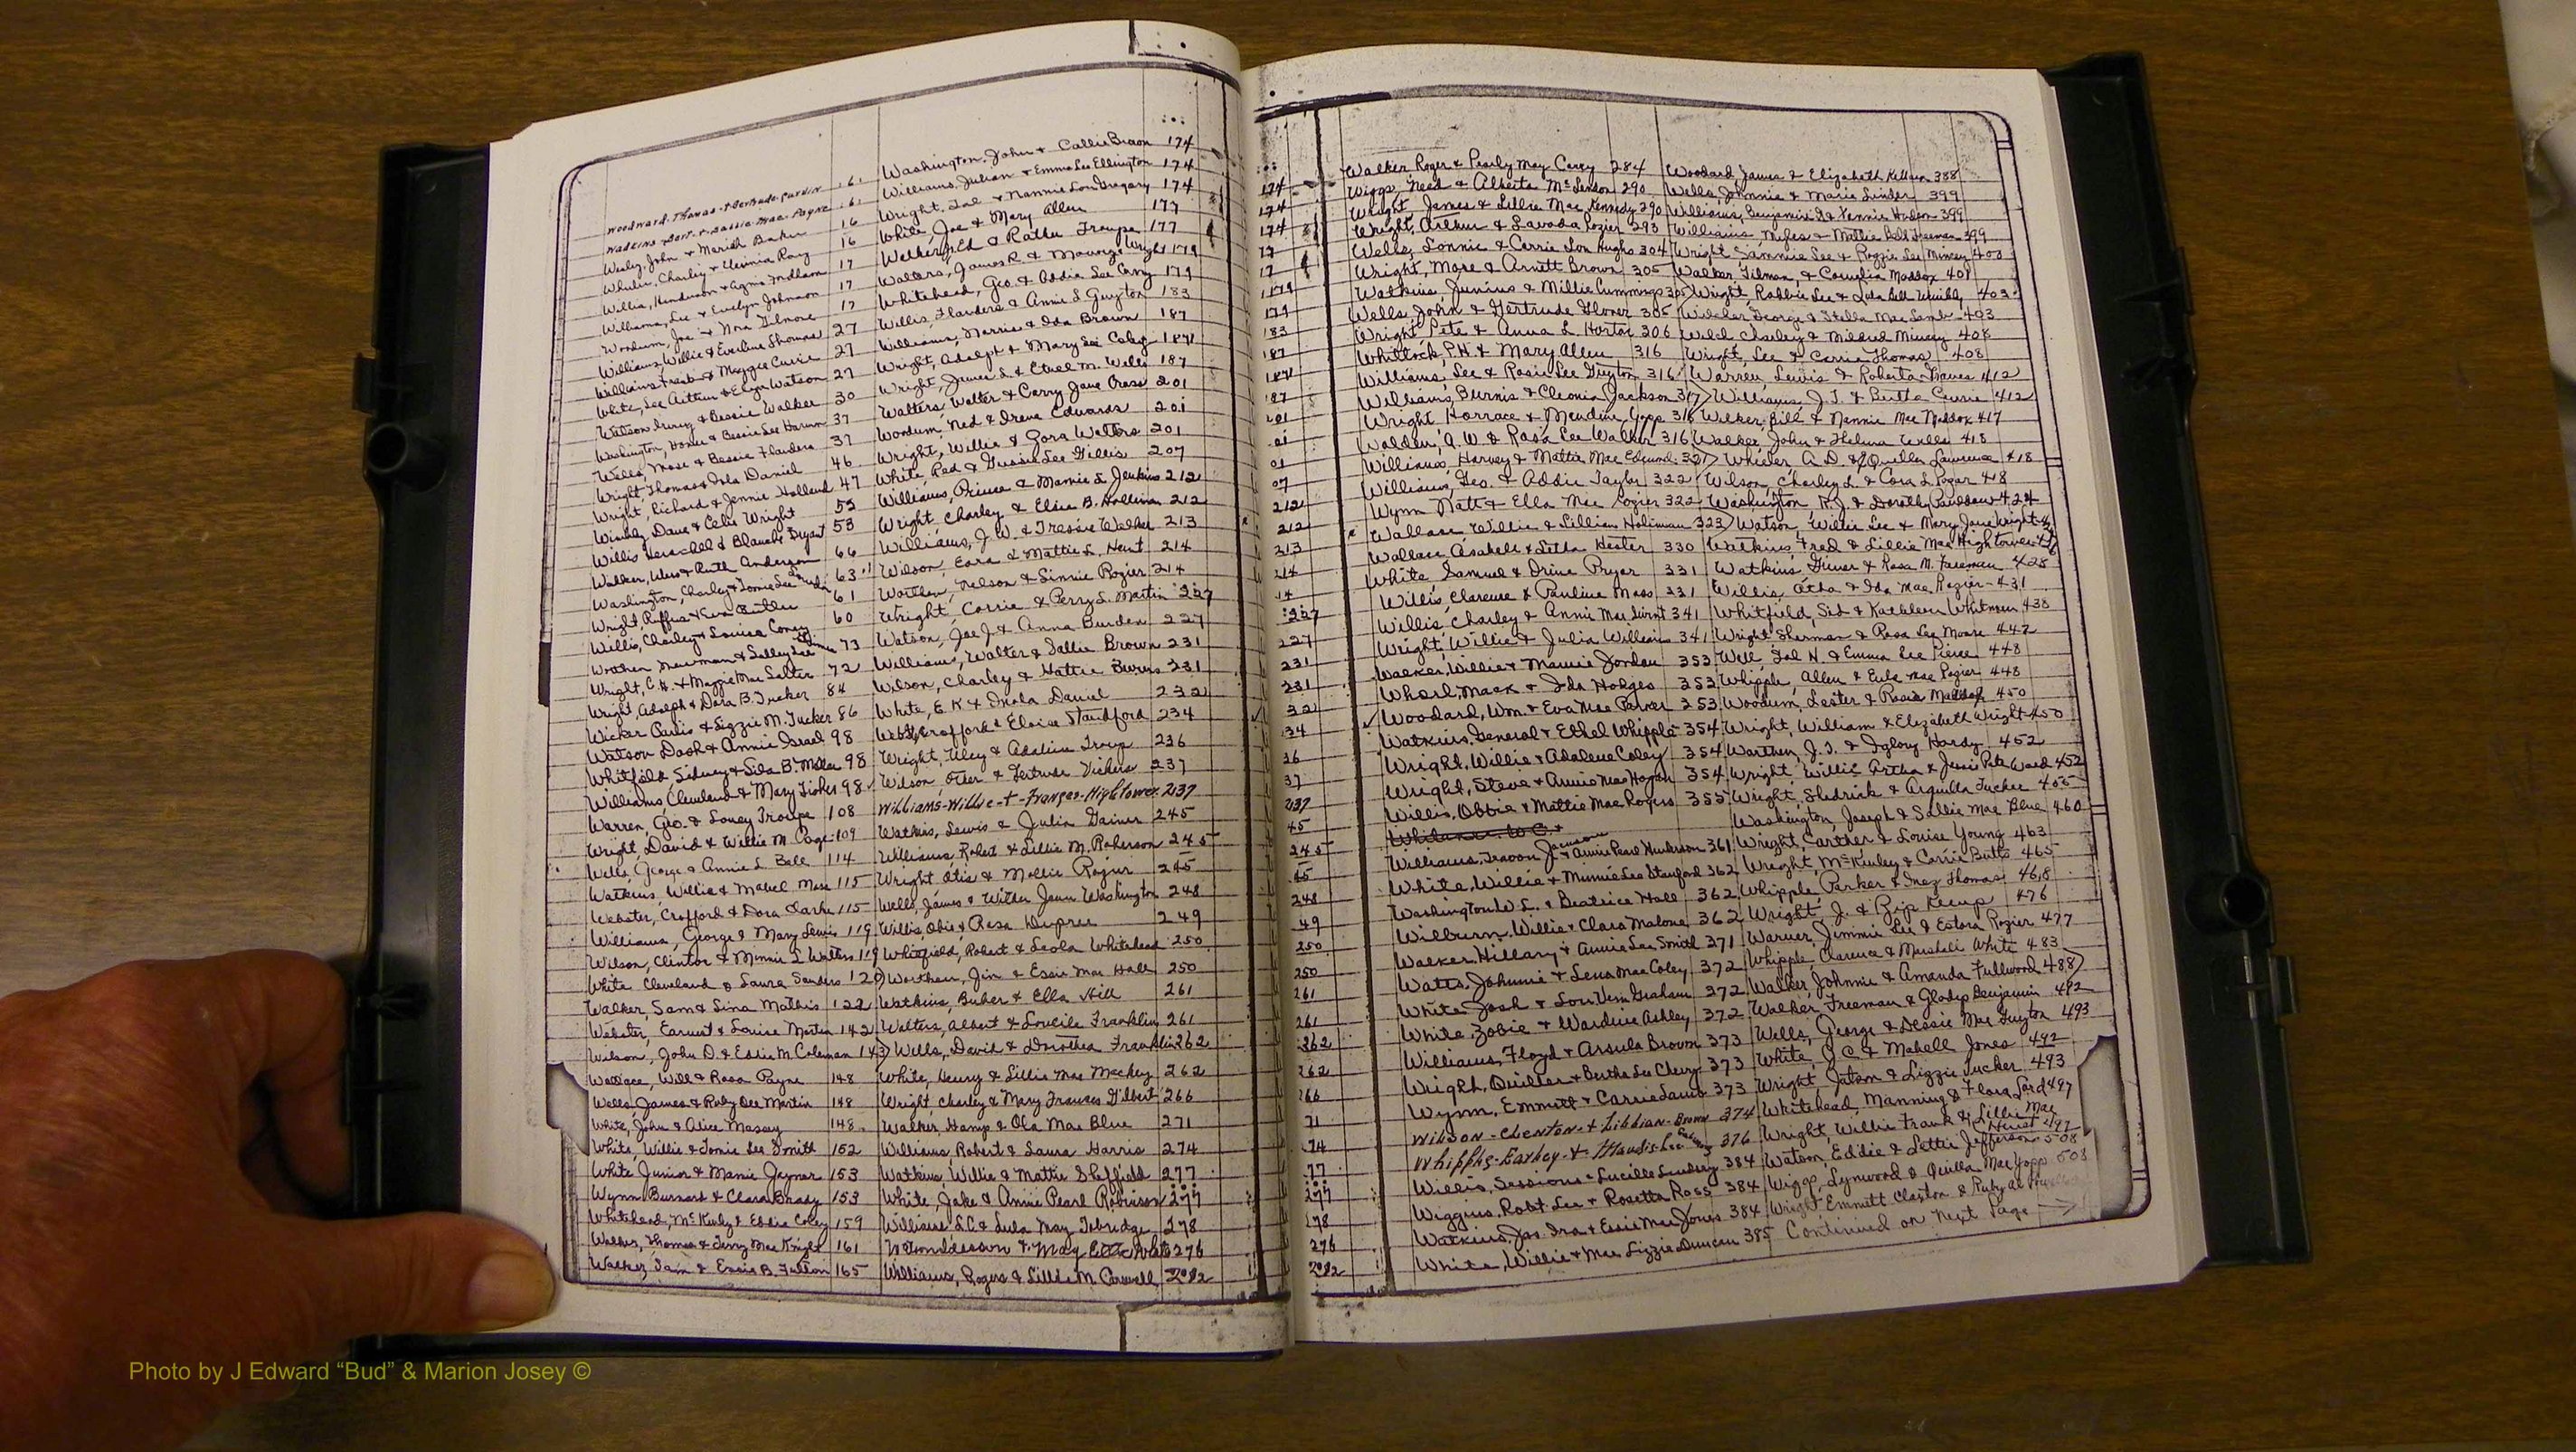 Woodward, Thomas + Gertrude 161
Watkins + Sallie Mae Payne 161
Wesley, John + Mariah Baker 16
Charley + Ray 16
Willis, Henderson + Agnes 17
Williams, Lee & Evelyn Johnson 17
Woodum, Joe + Nora Gilmore 17
Williams, Willie & Everline Thomas 27
Williams & Maggie Currie 27
White, Lee Arthur & Watson 27
Watson & Bessie Walker 30
Washington, & Bessie Lee 37
Wells, Mose & Bessie Flanders 37
Wright, Thomas & Iola Daniel 46
Wright, Richard & Jennie Holland 47
Wimbly, Dave & Celie Wright 53
Willis Herschell & Blanche Bryant 53
Walker, & Ruth Anderson 66
Washington, Charley & Lee 63
Wright, Ruffus & Butler 61
Willis, Charley & Louisa Coney 60
Worthen Newman & Salley Lee 73
Wright, C.H. & Maggie Mae Salter 72
Wright, Adolph & Dora B. Tucker 84
Wicker Curtis & Lizzie M. Tucker 86
Watson Dash & Annie Israel 98
Whitfield, Sidney & Lila B. Miller 98
Williams Cleveland & Mary Fisher 98
Warren, Geo. & Louey Troupe 108
Wright, David & Willie M. Page 109
Wells, George & Annie L. Bell 114
Watkins, Willie & Mabel Mose 115
Webster, Crofford & Dora Clarke 115
Williams, George & Mary Lewis 119
Wilson, Clinton & Minnie L. Walters 119
White Cleveland & Laura Sanders 120
Walker, Sam & Lina Mathis 122
Webster, Earnest & Louise Martin 142
Wilson, John D. & Essie M. Coleman 143
Wallace, Will & Rosa Payne 148
Wells, James & Ruby Dee Martin 148
White, John & Alice Massey 148
White, Willie & Tomie Lee Smith 152
White Junior & Mamie Joyner 153
Wynn Burnard & Clara Brady 153
Whitehead, McKinly & Eddie Coley 159
Walker, Thomas & Mae Knight 161
Walker, Sam & Essie B. Fulton 165
Washington, John + Callie Brown 174
Williams, Julian + Emma Lee Ellington 174
Wright, Sol + Nannie Lou Gregory 174
White, Joe & Mary Allen 177
Welker, Ed & Troupe 177
Walters, James R. & Wright 179
Whitehead, Geo. & Addie Lee Corry 179
Willis, Flanders & Annie L Guyton 183
Williams, Morris & Ida Brown 187
Wright, Adolph & Mary Lee Coley 187
Wright, James L. & Ethel M. Wells 187
Walters, Walter & Carry Jane Cross 201
Wordum, Ned & Irene Edwards 201
Wright, Willie & Zora Walters 201
White, Red & Gussie Lee Gillis 207
Williams, Prince & Mamie L. Jenkins 212
Wright, Charley & Elsie B. Holliman 212
Williams, J.W. & Tressie Walker 213
Wilson, Ezra & Mattie L. Hunt 214
Worthen, Nelson & Linnie Rozier 214
Wright, Corrie & Perry L. Martin 227
Watson, Joe J. & Anna Burden 227
Williams, Walter & Sallie Brown 231
Wilson, Charley & Hattie Burns 231
White, E.K & Iola Daniel 232
Webster, Crofford & Eloise Standford 234
Wright, Uley & Adaline Troup 236
Wilson, Oscar & Gertrude Vickers 237
Williams-Willie-t-Frances-Hightower 237
Watkins, Lewis & Julia Gainer 245
Williams, Robert & Lillie M. Roberson 245
Wright Otis & Mollie Rozier 245
Wells, James & Wilder Jean Washington 248
Willis, Obie & Rosa Dupree 249
Whitfield, Robert & Leola Whitehead 250
Worthen, Jim & Essie Mae Hall 250
Watkins, Buher & Ella Hill 261
Walters, Albert & Loucile Franklin 261
Wells, David & Dorothea Franklin 262
White, Henry & Lillie Mae Mackey 262
Wright, Charley & Mary Frances Gilbert 266
Walker, Hamp & Ola Mae Blue 271
Williams, Robert & Laura Harris 274
Watkins, Willie & Mattie Sheffield 277
White, Jake & Annie Pearl Robinson 277
Williams L.C. & Lula May 278
Watson & May White 276
Williams, Rogers & Lillie M. Carswell 282
174
174
174
17
17
179
179
183
187
187
87
01
01
01
07
212
212
213
214
14
227
227
231
231
32
34
36
37
237
45
245
45
248
49
250
250
261
261
262
262
266
71
74
77
277
78
276
282
Walker Roger & Pearly May Corey 284
Wiggs, Need & Alberta McLendon 290
Wright James & Lillie Mae Kennedy 290
Wright, Arthur & Lavada Rozier 293
Wells, Lonnie & Carrie Lou Hughs 304
Wright, Mose & Arnett Brown 305
Watkins, Junius & Millie Cummings 305
Wells, John & Gertrude Glover 305
Wright, Pete & Anna L. Horton 306
Whitlock, P.H. & Mary Allen 316
Williams, Lee & Rosie Lee Guyton 316
Williams, Burnis & Cleonia Jackson 317
Wright Horrace & Yopp 316
Walden, A.W. & Rosa Lee Walker 316
Williams, Harvey & Mattie Mae Edmond 321
Williams, Geo. & Addie Taylor 322
Wynn Natt & Ella Mae Rozier 322
Wallace, Willie & Lillian Holiman 323
Wallace Asabell & Letha Hester 330
White Samuel & Irine Pryor 331
Willis, Clarence & Pauline Moss 331
Willis, Charley & Annie Mae 341
Wright, Willie & Julia Williams 341
Walker, Willie & Mamie Jordan 353
Mack & Ida Hodges 353
Woodard, Wm. & Eva Mae Parker 353
Watkins, General & Ethel Whipple 354
Wright, Willie & Adalene Coley 354
Wright, Steve & Annie Mae Hogan 354
Willis, Obbie & Mattie Mae Rogers 355
Williams, & Annie Pearl 361
White, Willie & Minnie Lee Stanford 362
Washington W.L. & Beatrice Hall 362
Wilburn, Willie & Clara Malone 362
Walker, Hillary & Annie Lee Smith 371
Watts, Johnnie & Lena Mae Coley 372
White Josh & Lou Vern Graham 372
White, Zobie & Wardine Ashley 372
Williams, Floyd & Arsula Brown 373
Wright, Quilter & Bertha Lee Cherry 373
Wynn, Emmett & Carrie Lamb 373
Wilson-Clenton-t Libbian-Brown 374
Whipple-Earley-t-Maudis-Lee 376
Willis, Sessions & Lucille Lindsey 384
Wiggins, Robt. Lee & Rosetta Ross 384
Watkins, Jas. Ira & Essie Mae Jones 384
White, Willie & Mae Lizzie Duncan 385
Woodard, James & Elizabeth 388
Wells, Johnnie & Marie Linder 399
Williams, Benjamin & Fannie Hudson 399
Williams, Mifes & Mattie Bell Freeman 399
Wright Sammie Lee & Rozzie Lee Mincey 400
Walker Tilman, & Cornelia Maddox 401
Wright, Robbie Lee & Lula Bell Wimbly 403
George & Stella Mae Lamb 403
Charley & Mildred Mincey 408
Wright, Lee & Carrie Thomas 408
Warren, Lewis & Roberta Graves 412
Williams, J.T. & Bertha Currie 412
Welker, Bill & Nannie Mae Maddox 417
Walker, John & Thelma Wells 418
A.D. & Lawrence 418
Wilson, Charley L. & Cora L. Pogar 418
Washington, R.J. & Dorothy 424
Watson, Willie Lee & Mary Jane Wright
Watkins, Fred & Lillie Mae Hightower
Watkins, & Rosa M. Freeman 428
Willis, Otha & Ida Mae Rozier 431
Whitfield, Sid & Kathleen Whitman 438
Wright Sherman & Rosa Lee Moore 442
Well, Sol H. & Emma Lee Pierce 448
Whipple, Allen & Eula Mae Rozier 448
Woodum, Lester & Rosie 450
Wright, William & Elizabeth Wright 450
Warthen, J.T. & Iglory Hardy 452
Wright, Willie Artha & Jessie Pate Ward 452
Wright, Shedrick & Arquilla Tucker 455
Washington, Joseph & Sallie Mae Blue 460
Wright, Carther & Louise Young 463
Wright, McKinley & Carrie Butts 465
Whipple, Parker & Inez Thomas 468
Wright, J. & Rip Keemp 476
Warner, Jimmie Lee & Estora Rozier 477
Whipple, Clarence & Mershell White 483
Walker, Johnnie & Amanda Fullwood 488
Walker, Freeman & Gladys Benjamin 492
Wells, George & Dessie Mae Guyton 493
White, J.C. & Mabell Jones 492
Wright, Jutson & Lizzie Tucker 493
Whitehead, Manning & Flora Lord 497
Wright, Willie Frank & Lillie Mae 497
Watson, Eddie & Lettie Jefferson 508
Wiggs, Lynwood & Quilla Mae Yopp 508
Wright Emmett Claxton & Ruby
Continued on Next Page →
Photo by J Edward “Bud” & Marion Josey ©